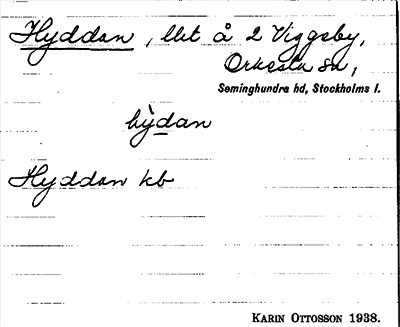 Hyddan, llet å 2 Viggeby,
Orkesta sn,
Seminghundra hd, Stockholms l.
hỳdan
Hyddan kb
KARIN OTTOSSON 1938.